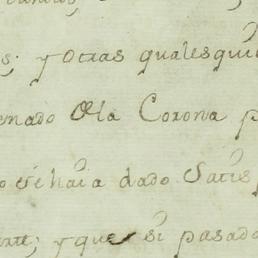 s; y Otras qualesqui
enado de la Corona p
dado Satis
nte; y que si pasado